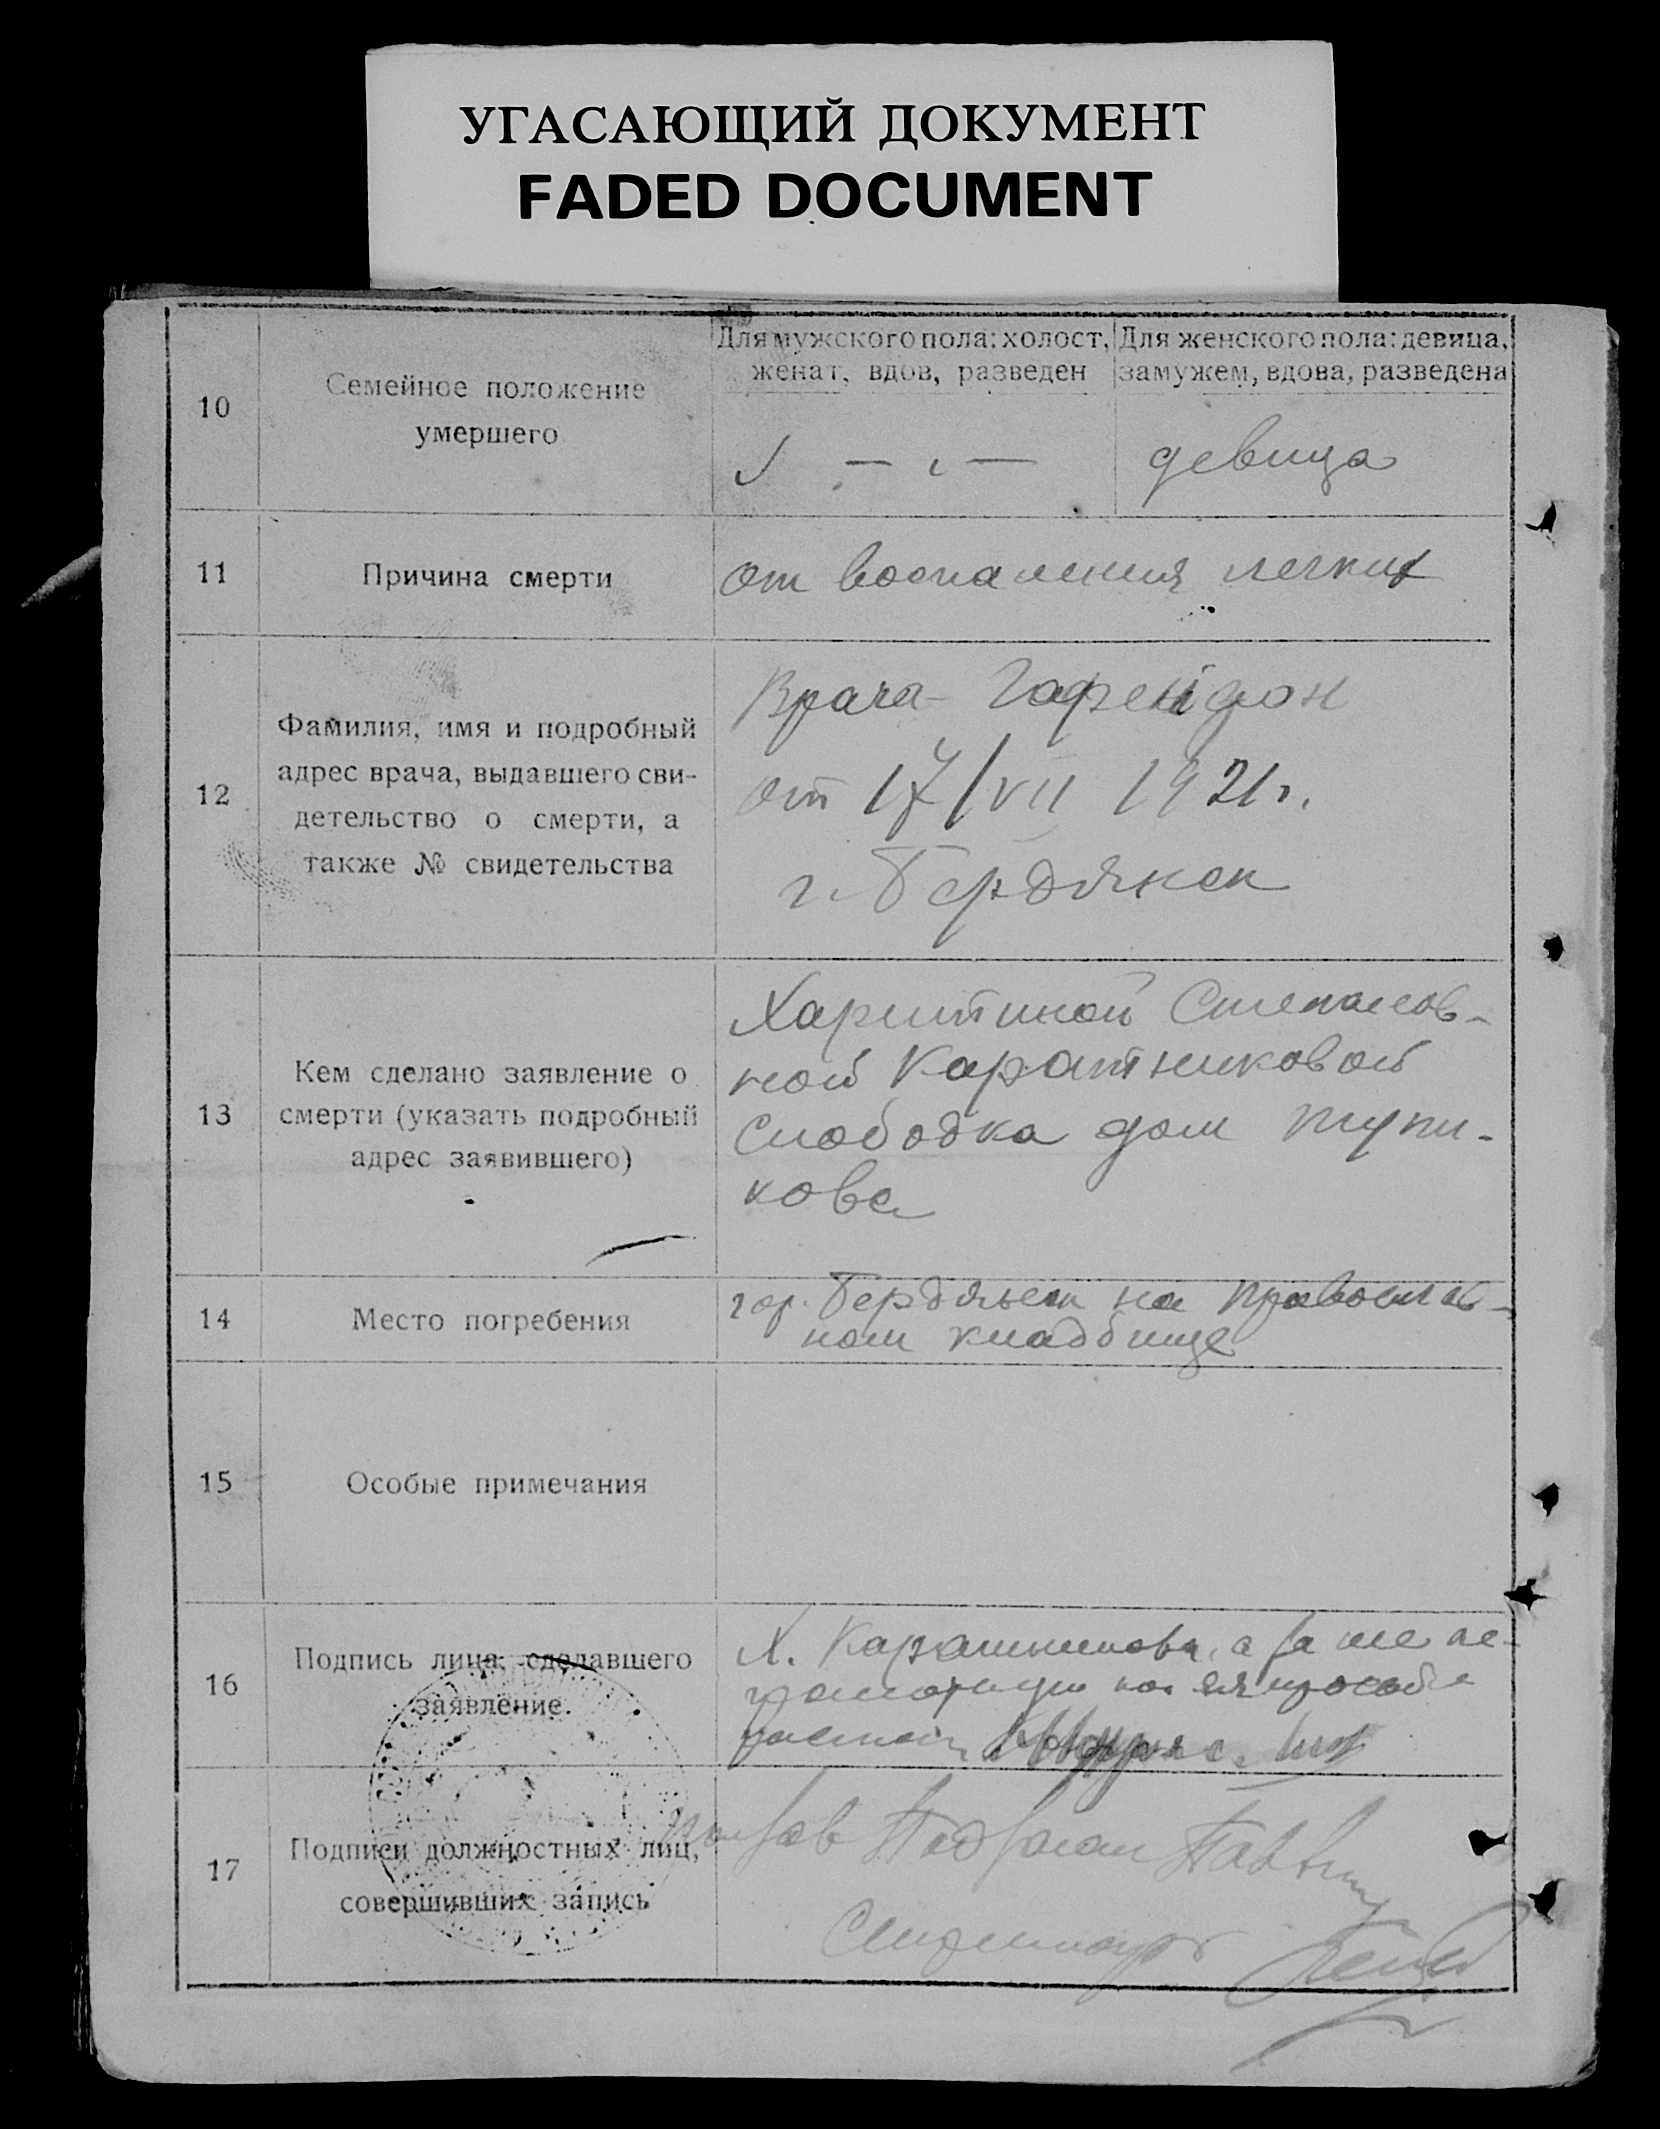 УГАСАЮЩИЙ ДОКУМЕНТ
FADED DOCUMENT
10
Семейное положение
умершего
Для мужского пола: холост,
женат, вдов, разведен
Для женского пола: девица,
замужем, вдова, разведена
девица
11
Причина смерти
от воспаления легких
12
Фамилия, имя и подробный
адрес врача, выдавшего сви-
детельство о смерти, а
также № свидетельства
Врача
от 17/VII 1921 г.
г. Бердянск
13
Кем сделано заявление о
смерти (указать подробный
адрес заявившего)
Харитиной Степанов-
ной Каратниковой
Слободка дом Тупи-
кова
14
Место погребения
гор. Бердянск на православ-
ном кладбище
15
Особые примечания
16
Подпись лица, сделавшего
заявление.
Х. а за не не-
грамотную по ея просьбе
17
Подписи должностных лиц,
совершивших запись